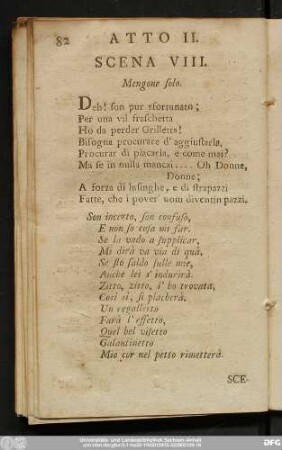 82 ATTO II.
SCENA VIII.
Mengone solo.
Deh! son pur sfortunato;
Per una vil fraschetta
Ho da perder Grilletta!
Bisogna procurare d' aggiustarla,
Procurar di placarla, e come mai?
Ma se in nulla mancai.... Oh Donne,
Donne;
A forza di lusinghe, e di strapazzi
Fatte, che i pover uomi diventin pazzi.
Son incerto, son confuso,
E non so cosa mi far.
Se la vado a supplicar,
Mi dirà va via di quà.
Se sto saldo sulle mie,
Anche lei s' indurirà.
Zitto, zitto, l' ho trovata,
Così sì, si placherà.
Un regalletto
Farà l' effetto,
Quel bel visetto
Galantinetto
Mio cor nel petto rimetterà.
SCE-
Universitäts- und Landesbibliothek Sachsen-Anhalt
DFG